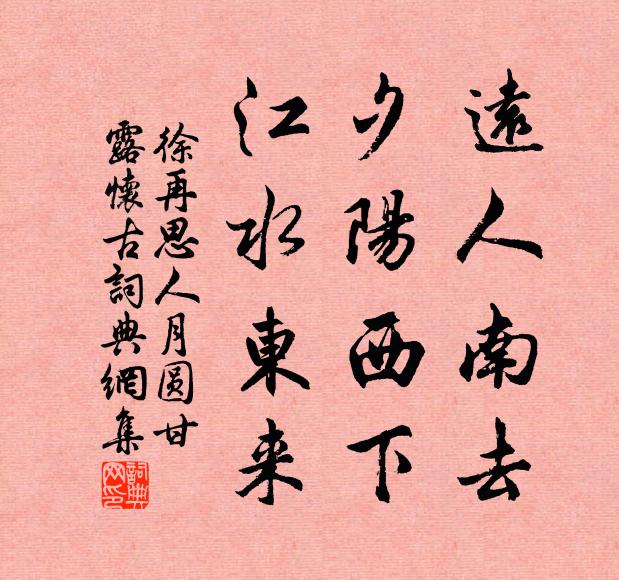 遠人南去
夕陽西下
江水東来
徐再思人月圆甘
露懷古詞典網集
詞典
网印